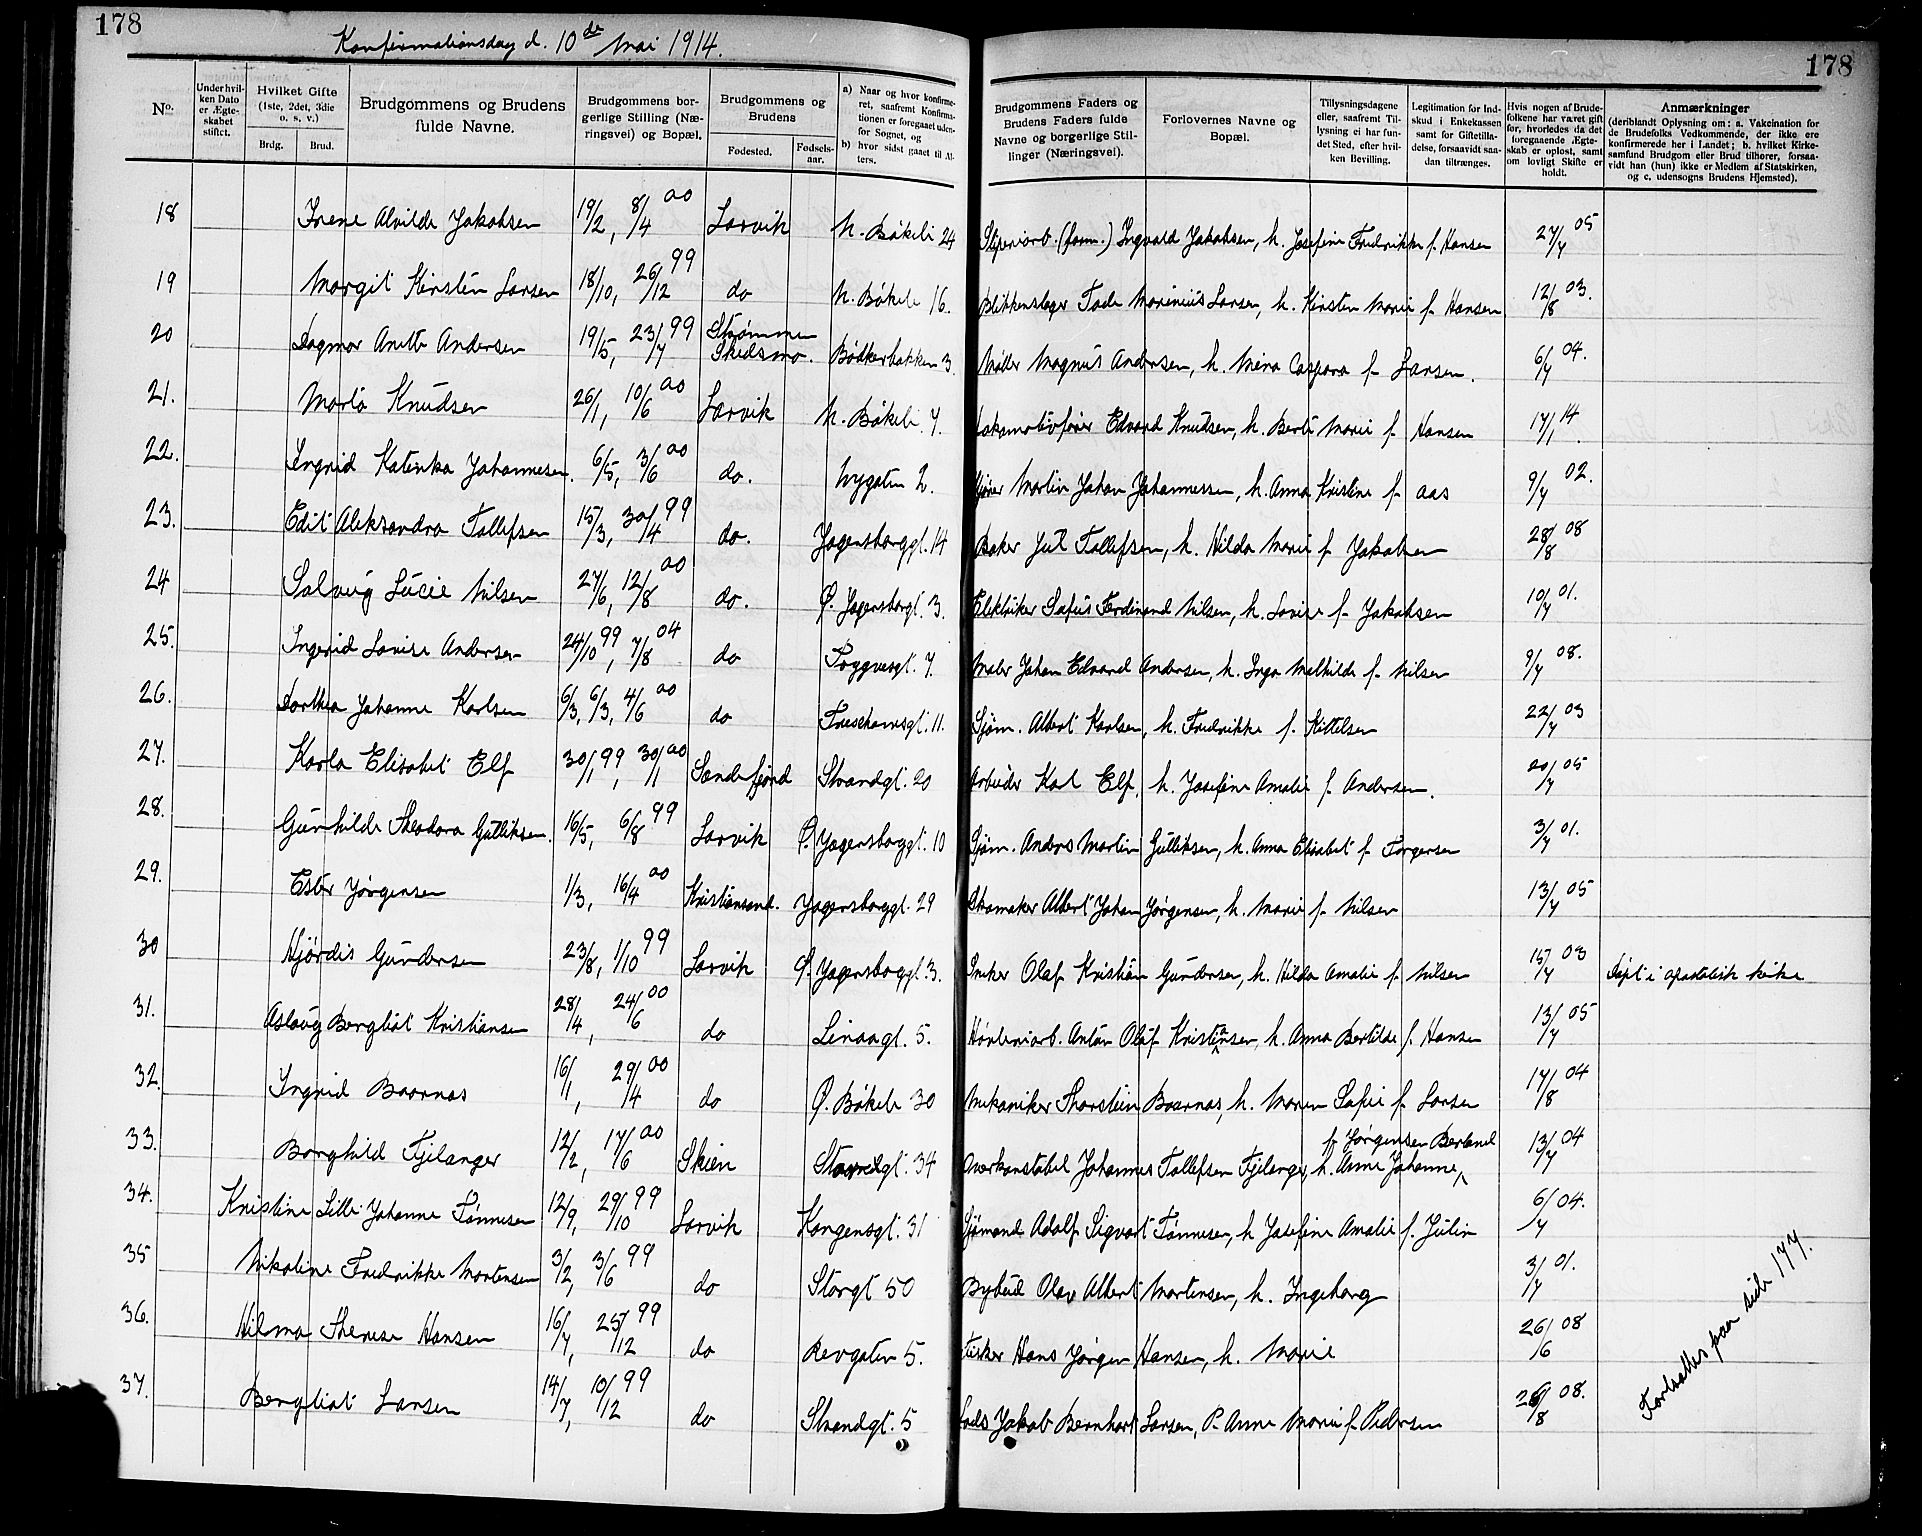 178
Konfirmationsdag d. 10de Mai 1914.
178
No.
Under hvilken Dato er Ægteskabet stiftet.
Hvilket Gifte (1ste, 2det, 3die o. s. v.)
Brdg. Brud.
Brudgommens og Brudens fulde Navne.
Brudgommens borgerlige Stilling (Næringsvei) og Bopæl.
Brudgommens og Brudens
Fødested. Fødselsaar.
a) Naar og hvor konfirmeret, saafremt Konfirmationen er foregaaet udenfor Sognet, og
b) hvor sidst gaaet til Alters.
Brudgommens Faders og Brudens Faders fulde Navne og borgerlige Stillinger (Næringsvei).
Forlovernes Navne og Bopæl.
Tillysningsdagene eller, saafremt Tillysning ei har fundet Sted, efter hvilken Bevilling.
Legitimation for Indskud i Enkekassen samt for Giftetilladelse, forsaavidt saadan tiltrænges.
Hvis nogen af Brudefolkene har været gift før, hvorledes da det foregaaende Ægteskab er opløst, samt om lovligt Skifte er holdt.
Anmærkninger
(deriblandt Oplysning om: a. Vakcination for de Brudefolks Vedkommende, der ikke ere konfirmerede her i Landet; b. hvilket Kirkesamfund Brudgom eller Brud tilhører, forsaavidt han (hun) ikke er Medlem af Statskirken, og c. udensogns Brudens Hjemsted).
18 Irene Alvilde Jakobsen 19/2, 8/4 00 Larvik N. Bøkeli 24 (form.) Ingvald Jakobsen, h. Josefine Fredrikke f. Hansen 27/4 05
19 Margit Kirstin Larsen 18/10, 26/12 99 do N. Bøkele 16. Blikkenslager Marinius Larsen, h. Kirsten Marie f. Hansen 12/8 03.
20 Dagmar Anette Andersen 19/5, 23/7 99 Strømmen Skedsmo. Bødkerbakken 3. Møller Magnus Andersen, h. Mina Caspara f. Larsen. 6/4 04.
21. Marta Knudsen 26/1, 10/6 00 Larvik N. Bøkeli. 7. Lokomotivfører Edvard Knudsen, h. Berte Marie f. Hansen 17/1 14
22. Ingrid Katinka Johannesen. 6/5, 3/6 00 do. Nygaten 2. Martin Johan Johannessen, h. Anna Kristine f. Aas 9/4 02.
23. Edit Aleksandra Tollefsen 15/3, 30/4 99 do. Jegersborggt. 14 Baker Jul Tollefsen, h. Hilda Marie f. Jakobsen 28/8 08
24 Solveig Lucie Nilsen 27/6, 12/8 00 do. Ø. Jegersborgt. 3. Elektriker Sofus Ferdinand Nilsen, h. Lovise f. Jakobsen 10/4 01.
25. Ingrid Lovise Andersen 24/10 99, 7/8 04 do Tryggvesgt. 7. Maler Johan Edvard Andersen, h. Inga Mathilde f. Nilsen 9/4 08.
26. Dorthea Johanne Karlsen 6/3, 6/3, 4/6 00 do Treschowsgt. 11. Sjøm. Albert Karlsen, h. Fredrikke f. Kittelsen 22/4 03
27. Karla Elisabet Elf 30/1 99, 30/1 00 Sandefjord Strandgt. 20 Arbeider Karl Elf, h. Josefine Amalie f. Andersen. 20/4 05
28. Gunhilde Theodora Gulliksen. 16/5, 6/8 99 Larvik Ø. Jegersborggt. 10 Sjøm. Anders Martin Gulliksen, h. Anna Elisabet f. Torgersen 3/4 01.
29. Ester Jørgensen 1/3, 16/4 00 Kristiansand. Jegersborggt. 29 Skomaker Albert Johan Jørgensen, h. Marie f. Nilsen 13/4 05
30 Hjørdis Gundersen 23/8, 1/10 99 Larvik Ø. Jegersborggt. 3. Olaf Kristian Gundersen, h. Hilda Amalie f. Nilsen 15/4 03 Døpt i apostolisk kirke
31. Aslaug Bergliot Kristiansen 28/4, 24/6 00 do Linaagt. 5. Anton Olaf Kristiansen, h. Anna Bertilde f. Hansen 13/4 05
32. Ingrid Baarnas 16/1, 29/4 00 do Ø. Bøkele 30 Mekaniker Thorstein Baarnas, h. Maren Sofie f. Larsen 17/8 04
33. Borghild Fjelanger 12/2, 17/6 00 Skien Storredgt. 34 Overkonstabel Johannes Tollefsen Fjelanger, h. Anne Johanne, f. Jørgensen Berland 13/4 04
34. Kristine Lille Johanne Tønnesen 12/9, 29/10 99 Larvik Kongensgt. 31 Sjømand Adolf Sigvart Tønnesen, h. Josefine Amalie f. Julin 6/4 04.
35 Nikoline Fredrikke Mortensen 3/2, 3/6 99 do Storgt 50 Bybud Olav Albert Mortensen, h. Ingeborg 3/4 01.
36. Hilma Therese Hansen 16/7, 25/12 99 do Revgaten 5. Fisker Hans Jørgen Hansen, h. Marie 26/6 08
37. Bergliot Larsen 14/7, 10/12 99 do Strandgt. 5 Lods Jakob Bernhart Larsen, P. Anne Marie f. Pedersen 26/8 08.
Fortsattes paa side 177.